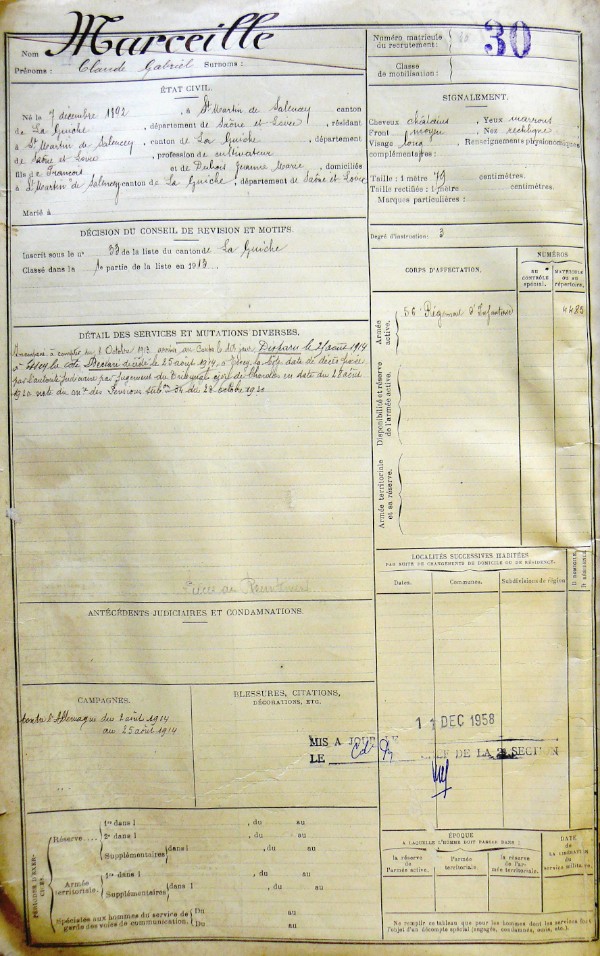 Nom Marceille
Prénoms : Claude Gabriel Surnoms :
Numéro matricule du recrutement : 30
Classe de mobilisation :
ÉTAT CIVIL.
Né le 7 décembre 1892, à St Martin de Salencey canton
de La Guiche, département de Saône et Loire, résidant
à St Martin de Salencey, canton de La Guiche, département
de Saône et Loire, profession de cultivateur
fils de François et de Dubois Jeanne Marie, domiciliés
à St Martin de Salencey canton de La Guiche, département de Saône et Loire
Marié à
SIGNALEMENT.
Cheveux châtains Yeux marrons
Front moyen Nez rectiligne
Visage long Renseignements physionomiques
complémentaires :
Taille : 1 mètre 79 centimètres.
Taille rectifiée : 1 mètre centimètres.
Marques particulières :
DÉCISION DU CONSEIL DE REVISION ET MOTIFS.
Inscrit sous le n° 33 de la liste du canton de La Guiche
Classé dans la 1e partie de la liste en 1913
Degré d'instruction : 3
DÉTAIL DES SERVICES ET MUTATIONS DIVERSES.
Incorporé à compter du 8 Octobre 1913 arrivé au Corps le dit jour Disparu le 25 août 1914
à Essey la côte. Déclaré décédé le 25 août 1914, à Essey la Côte date de décès fixée
par l'autorité judiciaire par jugement du Tribunal civil de Charolles en date du 28 août
1920 note du mtre des Pensions du 28 octobre 1920
CORPS D'AFFECTATION.
NUMÉROS
AU CONTRÔLE spécial.
MATRICULE OU AU répertoire.
Armée active.
56e Régiment d'Infanterie 4485
Disponibilité et réserve de l'armée active.
Armée territoriale et sa réserve.
LOCALITÉS SUCCESSIVES HABITÉES
PAR SUITE DE CHANGEMENTS DE DOMICILE OU DE RÉSIDENCE.
Dates. Communes. Subdivisions de région D. domicile. R. résidence.
ANTÉCÉDENTS JUDICIAIRES ET CONDAMNATIONS.
CAMPAGNES.
contre l'Allemagne du 2 août 1914
au 25 août 1914
BLESSURES, CITATIONS,
DÉCORATIONS, ETC.
11 DEC 1958
MIS A JOUR
LE
LE DE LA 2e SECTION
PÉRIODES D'EXERCICES.
Réserve
1re dans l , du au
2e dans l , du au
Supplémentaires dans l , du au
Armée territoriale.
1re dans l , du au
Supplémentaires dans l , du au
Spéciales aux hommes du service de garde des voies de communication.
Du au
Du au
ÉPOQUE
A LAQUELLE L'HOMME DOIT PASSER DANS :
la réserve de l'armée active.
l'armée territoriale.
la réserve de l'armée territoriale.
DATE DE LA LIBÉRATION du service militaire.
Ne remplir ce tableau que pour les hommes dont les services font
l'objet d'un décompte spécial (engagés, condamnés, omis, etc.).